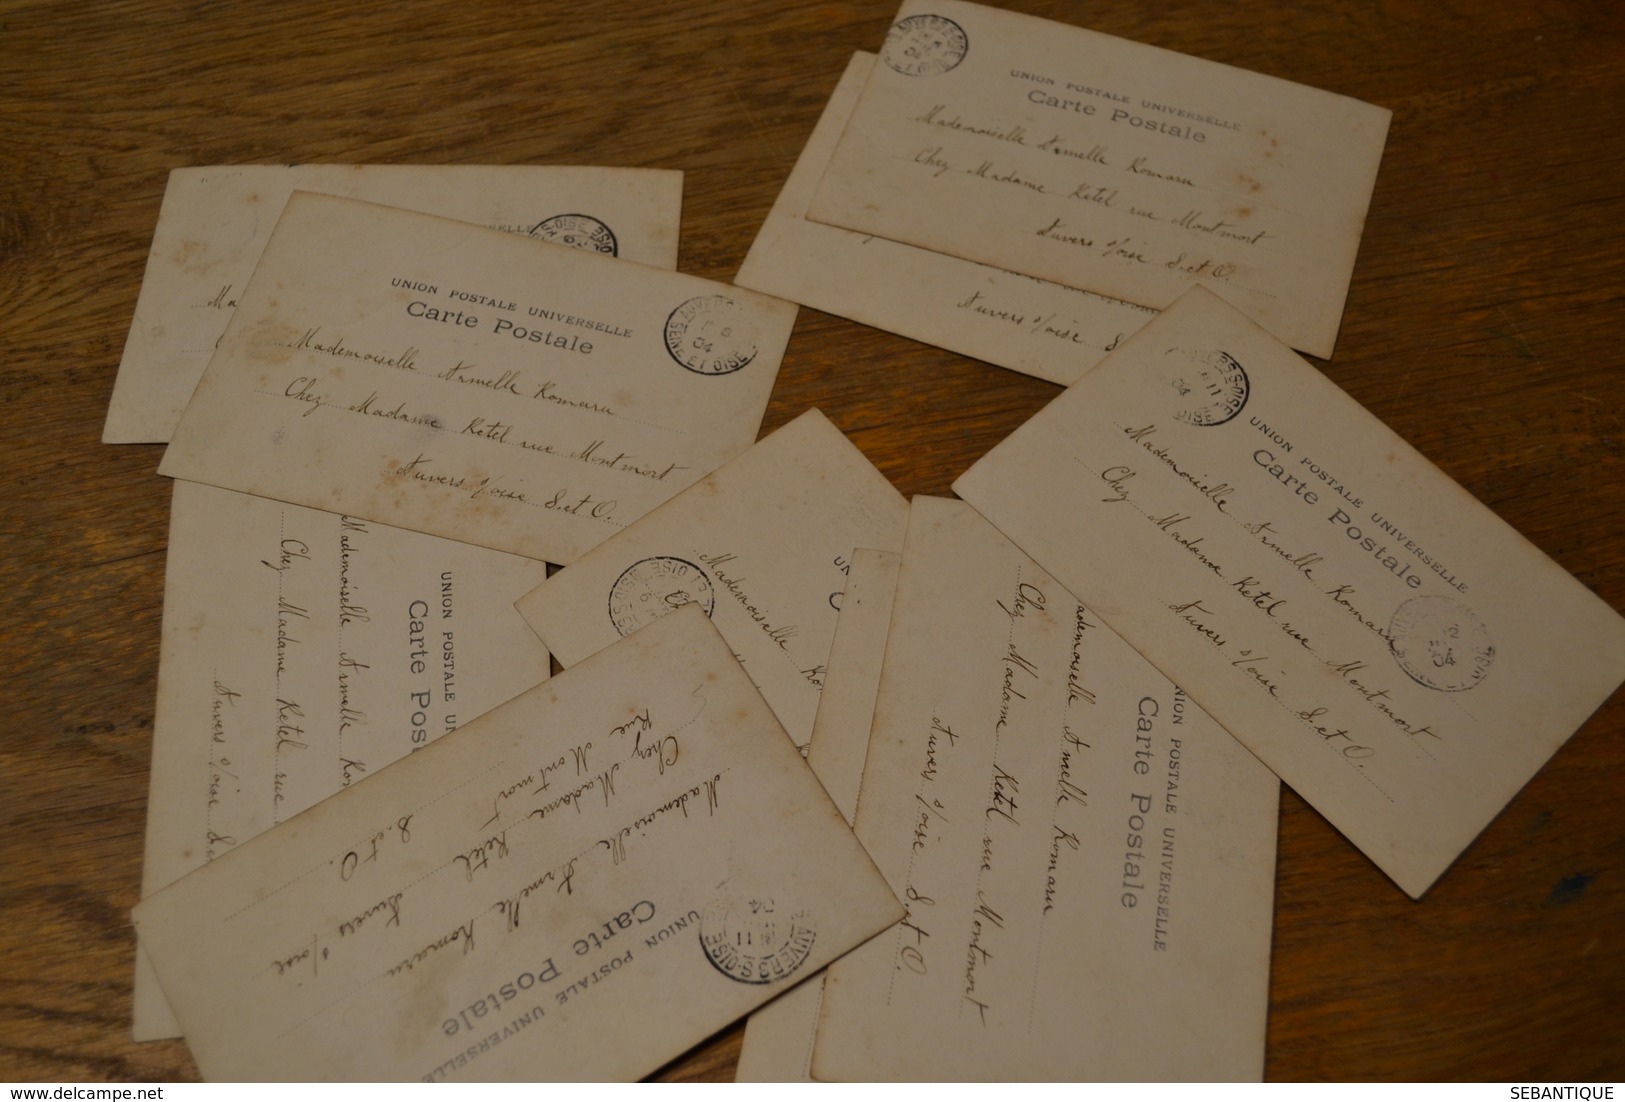 AUVERS-S-OISE
04
UNION POSTALE UNIVERSELLE
Carte Postale
Mademoiselle Armelle Romaru
Chez Madame Ketel rue Montmort
Auvers s/oise S. et O.
Auvers s/oise S
ELLE
OISE
Ma
UNION POSTALE UNIVERSELLE
Carte Postale
AUVERS
04
SEINE ET OISE
Mademoiselle Armelle Romaru
Chez Madame Ketel rue Montmort
Auvers s/oise S. et O.
S-OISE
11
04
UNION POSTALE UNIVERSELLE
Carte Postale
Mademoiselle Armelle Romaru
Chez Madame Ketel rue Montmort
Auvers s/oise S. et O.
UNION POSTALE UNIV
Carte Pos
Mademoiselle Armelle Ro
Chez Madame Ketel rue
Auvers s/oise S
UN
C
Mademoiselle Ro
OISE
UNION POSTALE UNIVERSELLE
Carte Postale
ademoiselle Armelle Romaru
Chez Madame Ketel rue Montmort
Auvers s/oise S. et O.
UNION POSTALE UNIVERSELLE
Carte Postale
AUVERS-S-OISE
11
04
Mademoiselle Armelle Romaru
Chez Madame Ketel Auvers s/oise
Rue Montmort S. et O.
delcampe.net
SEBANTIQUE